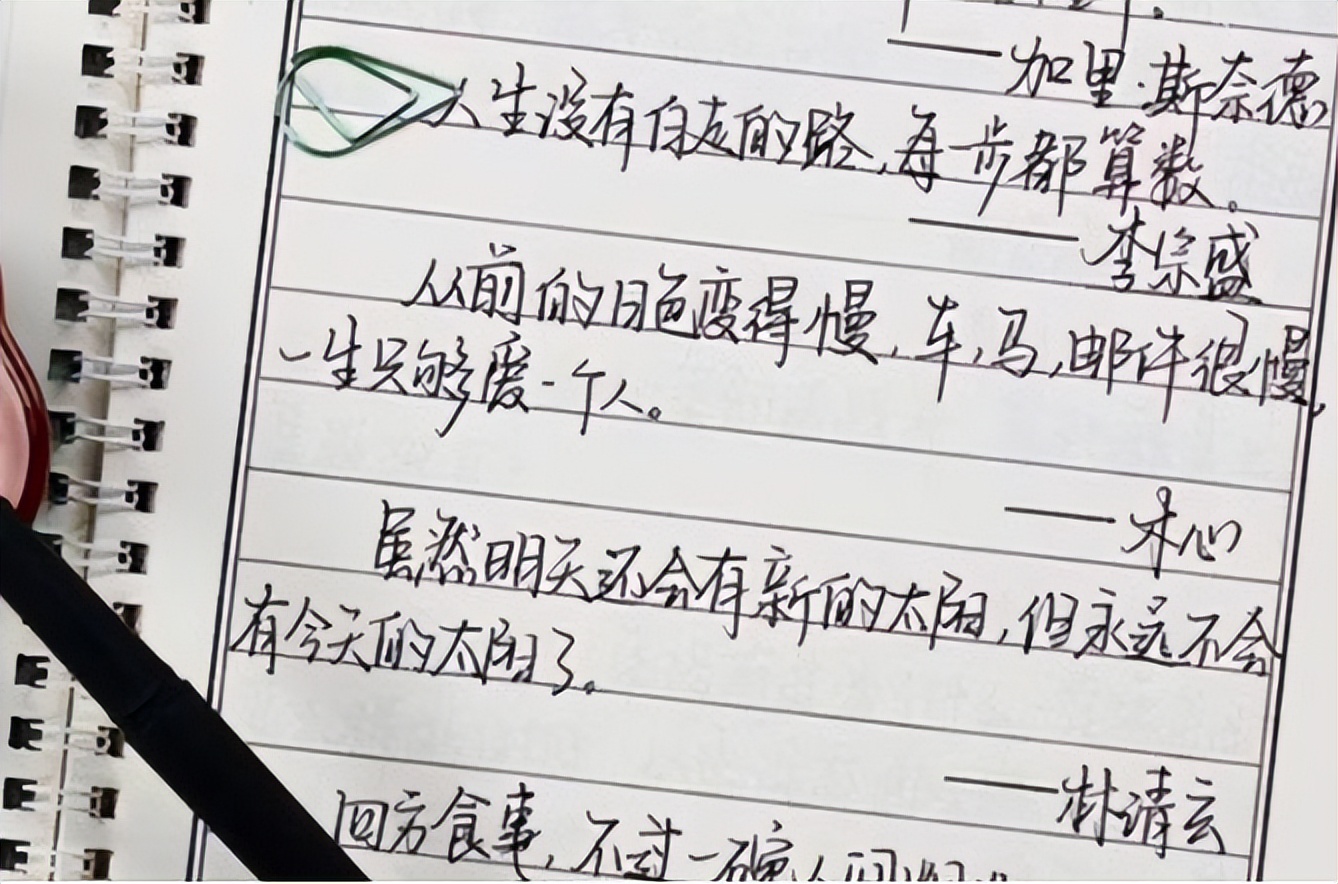 ——加里·斯奈德
人生没有白走的路,每一步都算数。
——李宗盛
从前的日色变得慢,车,马,邮件很慢,
一生只够爱一个人。
——木心
虽然明天还会有新的太阳,但永远不会
有今天的太阳了。
——林清玄
四方食事,不过一碗人间